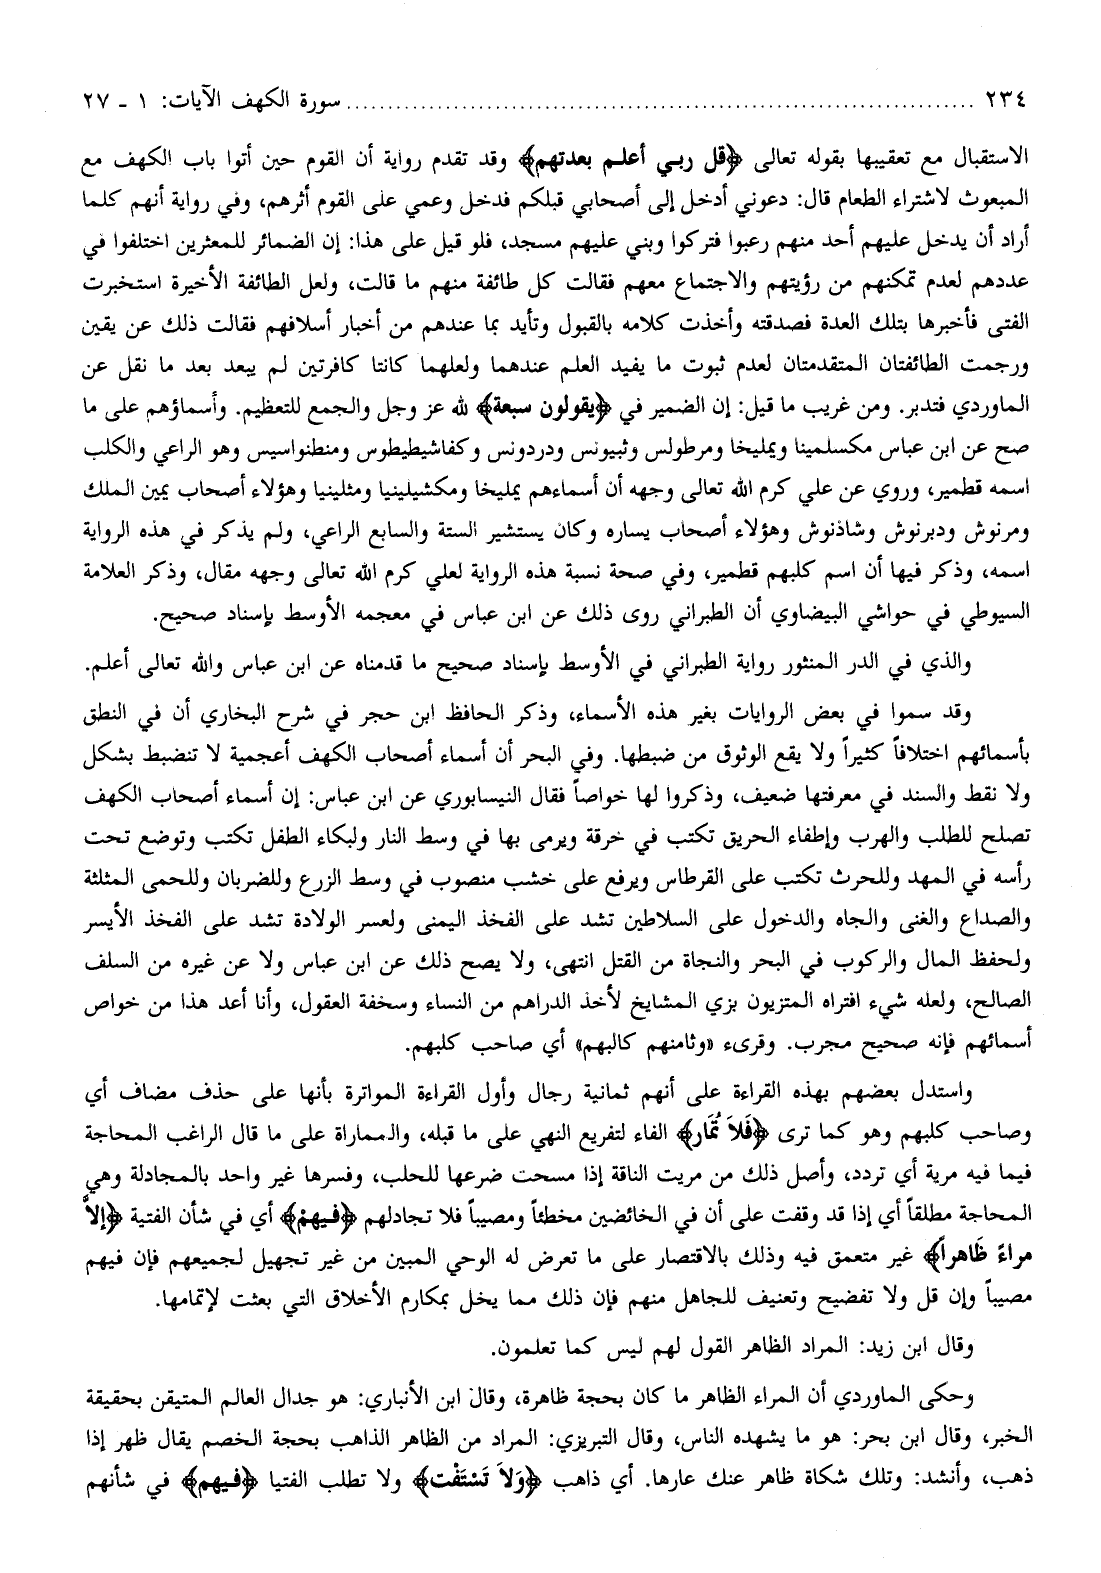 ٢٣٤ ........................................................................... سورة الكهف الآيات: ١ ـ ٢٧
الاستقبال مع تعقيبها بقوله تعالى ﴿قل ربي أعلم بعدتهم﴾ وقد تقدم رواية أن القوم حين أتوا باب الكهف مع
المبعوث لاشتراء الطعام قال: دعوني أدخل إلى أصحابي قبلكم فدخل وعمي على القوم أثرهم، وفي رواية أنهم كلما
أراد أن يدخل عليهم أحد منهم رعبوا فتركوا وبني عليهم مسجد، فلو قيل على هذا: إن الضمائر للمعثرين اختلفوا في
عددهم لعدم تمكنهم من رؤيتهم والاجتماع معهم فقالت كل طائفة منهم ما قالت، ولعل الطائفة الأخيرة استخبرت
الفتى فأخبرها بتلك العدة فصدقته وأخذت كلامه بالقبول وتأيد بما عندهم من أخبار أسلافهم فقالت ذلك عن يقين
ورجمت الطائفتان المتقدمتان لعدم ثبوت ما يفيد العلم عندهما ولعلهما كانتا كافرتين لم يبعد بعد ما نقل عن
الماوردي فتدبر. ومن غريب ما قيل: إن الضمير في ﴿يقولون سبعة﴾ لله عز وجل والجمع للتعظيم. وأسماؤهم على ما
صح عن ابن عباس مكسلمينا ويمليخا ومرطولس وثبيونس ودردونس وكفاشيطيطوس ومنطنواسيس وهو الراعي والكلب
اسمه قطمير، وروي عن علي كرم الله تعالى وجهه أن أسماءهم يمليخا ومكشيلينيا ومثلينيا وهؤلاء أصحاب يمين الملك
ومرنوش ودبرنوش وشاذنوش وهؤلاء أصحاب يساره وكان يستشير الستة والسابع الراعي، ولم يذكر في هذه الرواية
اسمه، وذكر فيها أن اسم كلبهم قطمير، وفي صحة نسبة هذه الرواية لعلي كرم الله تعالى وجهه مقال، وذكر العلامة
السيوطي في حواشي البيضاوي أن الطبراني روى ذلك عن ابن عباس في معجمه الأوسط بإسناد صحيح.
والذي في الدر المنثور رواية الطبراني في الأوسط بإسناد صحيح ما قدمناه عن ابن عباس والله تعالى أعلم.
وقد سموا في بعض الروايات بغير هذه الأسماء، وذكر الحافظ ابن حجر في شرح البخاري أن في النطق
بأسمائهم اختلافاً كثيراً ولا يقع الوثوق من ضبطها. وفي البحر أن أسماء أصحاب الكهف أعجمية لا تنضبط بشكل
ولا نقط والسند في معرفتها ضعيف، وذكروا لها خواصاً فقال النيسابوري عن ابن عباس: إن أسماء أصحاب الكهف
تصلح للطلب والهرب وإطفاء الحريق تكتب في خرقة ويرمى بها في وسط النار ولبكاء الطفل تكتب وتوضع تحت
رأسه في المهد وللحرث تكتب على القرطاس ويرفع على خشب منصوب في وسط الزرع وللضربان وللحمى المثلثة
والصداع والغنى والجاه والدخول على السلاطين تشد على الفخذ اليمنى ولعسر الولادة تشد على الفخذ الأيسر
ولحفظ المال والركوب في البحر والنجاة من القتل انتهى، ولا يصح ذلك عن ابن عباس ولا عن غيره من السلف
الصالح، ولعله شيء افتراه المتزيون بزي المشايخ لأخذ الدراهم من النساء وسخفة العقول، وأنا أعد هذا من خواص
أسمائهم فإنه صحيح مجرب. وقرىء «وثامنهم كالبهم» أي صاحب كلبهم.
واستدل بعضهم بهذه القراءة على أنهم ثمانية رجال وأول القراءة المواترة بأنها على حذف مضاف أي
وصاحب كلبهم وهو كما ترى ﴿فَلاَ تُمَارِ﴾ الفاء لتفريع النهي على ما قبله، والمماراة على ما قال الراغب المحاجة
فيما فيه مرية أي تردد، وأصل ذلك من مريت الناقة إذا مسحت ضرعها للحلب، وفسرها غير واحد بالمجادلة وهي
المحاجة مطلقاً أي إذا قد وقفت على أن في الخائضين مخطئاً ومصيباً فلا تجادلهم ﴿فيهمْ﴾ أي في شأن الفتية ﴿إلاَّ
مراءً ظَاهراً﴾ غير متعمق فيه وذلك بالاقتصار على ما تعرض له الوحي المبين من غير تجهيل لجميعهم فإن فيهم
مصيباً وإن قل ولا تفضيح وتعنيف للجاهل منهم فإن ذلك مما يخل بمكارم الأخلاق التي بعثت لإتمامها.
وقال ابن زيد: المراد الظاهر القول لهم ليس كما تعلمون.
وحكى الماوردي أن المراء الظاهر ما كان بحجة ظاهرة، وقال ابن الأنباري: هو جدال العالم المتيقن بحقيقة
الخبر، وقال ابن بحر: هو ما يشهده الناس، وقال التبريزي: المراد من الظاهر الذاهب بحجة الخصم يقال ظهر إذا
ذهب، وأنشد: وتلك شكاة ظاهر عنك عارها. أي ذاهب ﴿وَلاَ تَسْتَفْت﴾ ولا تطلب الفتيا ﴿فيهم﴾ في شأنهم